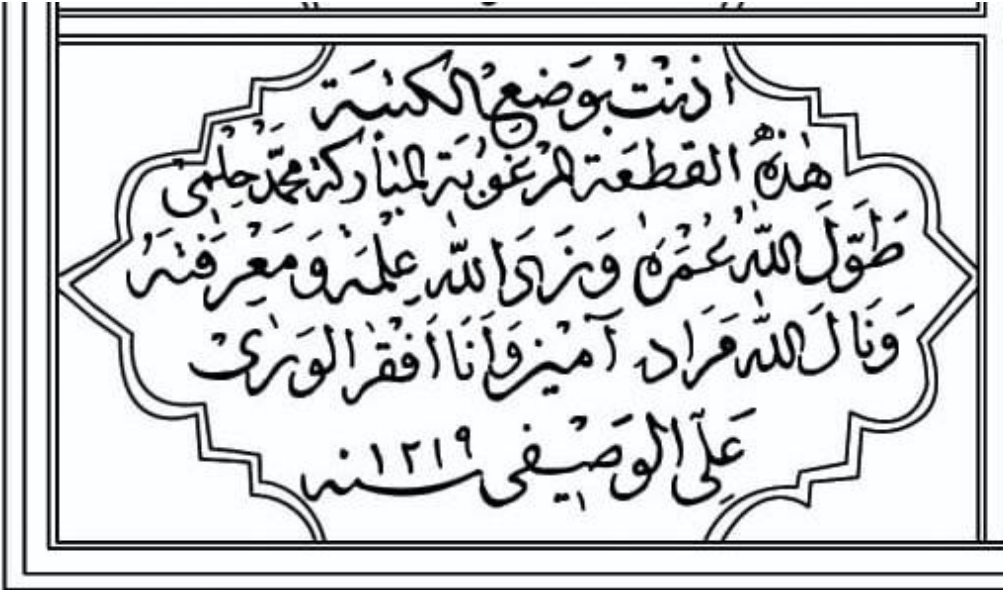 اذنت بوضع الكتبة
هذه القطعة المرغوبة المباركة محمد حلمى
طَوَّلَ اللّٰهُ عُمْرَهُ وَزَادَ اللّٰه عِلْمَهُ وَمَعْرِفَتَهُ
وَنَالَ اللّٰه مَرَادَه آمين وَاَنَا اَفْقَر الوَرٰى
عَلِى الوَصفى سنه ١٢١٩